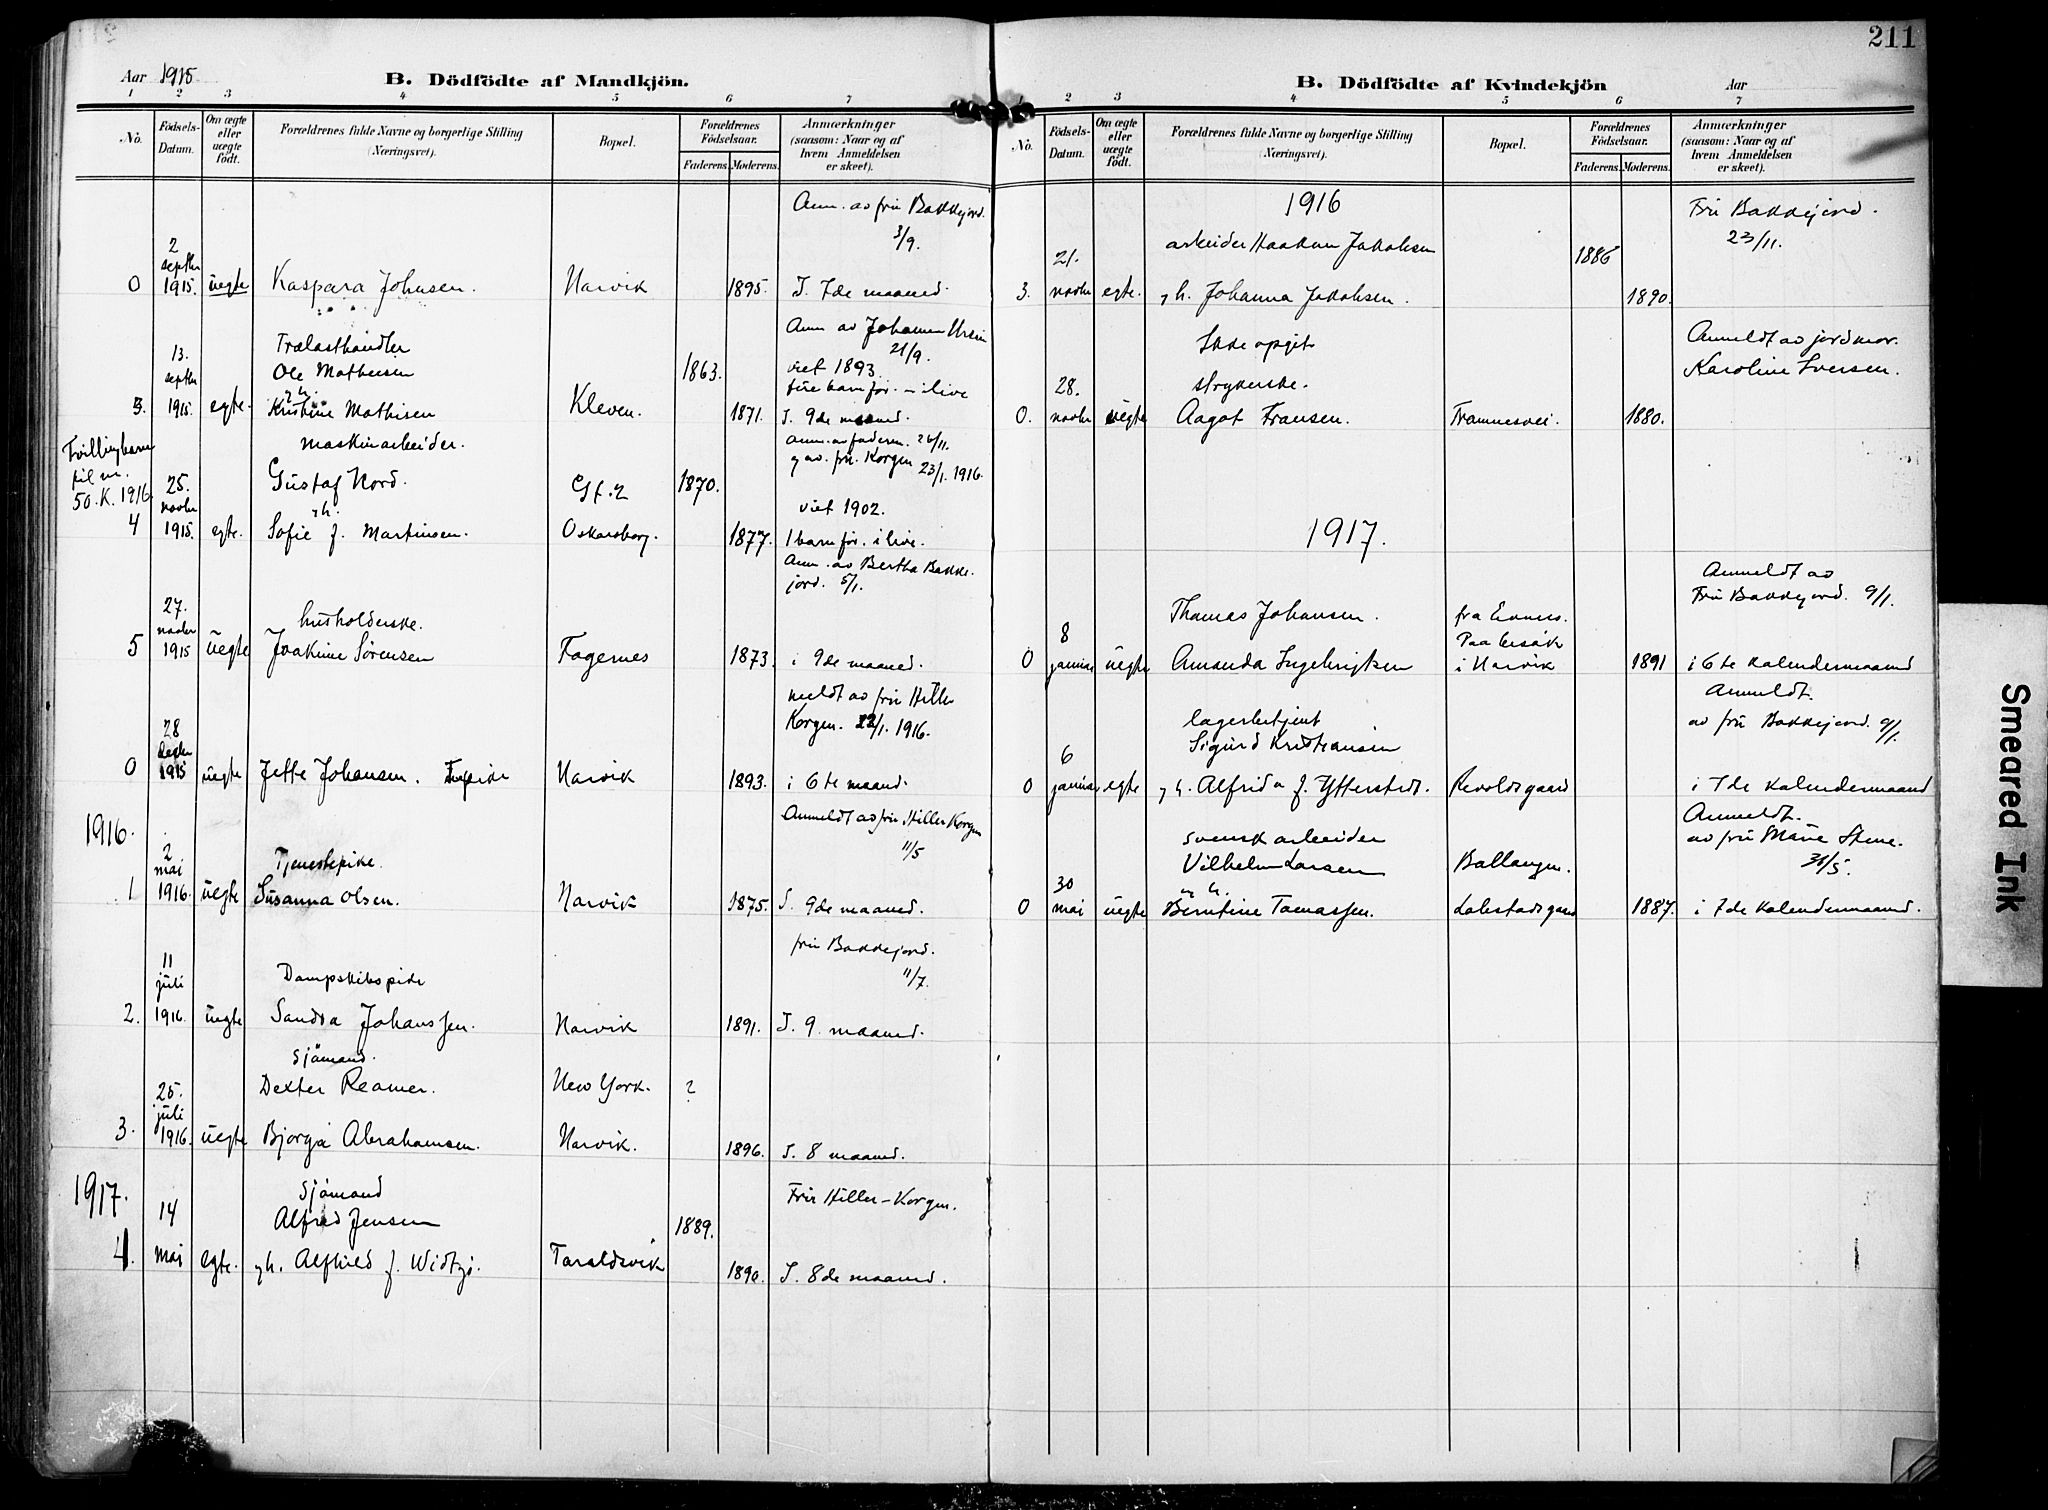 211
Aar 1915
B. Dödfödte af Mandkjön.
1 2 3 4 5 6 7
No.
Födsels-Datum.
Om ægte eller uægte födt.
Forældrenes fulde Navne og borgerlige Stilling (Næringsvei).
Bopæl.
Forældrenes Födselsaar.
Faderens. Moderens.
Anmærkninger (saasom: Naar og af hvem Anmeldelsen er skeet).
Anm. av fru Bakkejord.
3/9.
2
septbr
0 1915. uegte Kaspara Johnsen. Narvik 1895. I. 7de maaned.
Anm av Johanna Ursin
21/9.
13. Trælasthandler
septbr Ole Mathisen 1863. viet 1893.
fire barn før. - i live
3. 1915. egte. Kristine Mathisen Kleven. 1871. I. 9de maaned.
Tvillingbarn
til nr.
50. K. 1916.
maskinarbeider. anm. av faderen. 26/11.
og av. fru. Korgen 23/1. 1916.
25. Gustaf Nord. Gt. 2 1870.
novbr gh. viet 1902.
4 1915. egte. Sofie f. Martinsen. Oskarsborg. 1877. 1 barn før. i live.
Anm. av Bertha Bakke-
jord. 5/1.
27. husholderske.
novbr
5 1915 uegte Joakine Sørensen Fagernes 1873. i 9de maaned.
meldt av fru Hiller
Korgen. 22/1. 1916.
28
0 1915 uegte Jette Johansen. Narvik 1893. i 6te maaned.
1916.
Anmeldt av fru Hiller Korgen
11/5
2 Tjenestepike.
mai
1 1916. uegte Susanna Olsen. Narvik 1875. I. 9de maaned.
fru Bakkejord.
11/7.
11 Dampskibspike
juli
2. 1916. uegte Sandra Johanssen. Narvik 1891. I. 9. maaned.
Sjömand.
25. Dexter Reamer. New York. ?
juli
3. 1916. uegte Bjorga Abrahamsen. Narvik. 1896. I. 8 maaned.
1917.
Sjömand Fru Hiller-Korgen.
14 Alfred Jensen 1889.
4. mai egte. gh. Alfhild f. Widtzö. Taraldsvik 1890. I. 8de maaned.
B. Dödfödte af Kvindekjön
Aar
1 2 3 4 5 6 7
No.
Födsels-Datum.
Om ægte eller uægte födt.
Forældrenes fulde Navne og borgerlige Stilling (Næringsvei).
Bopæl.
Forældrenes Födselsaar.
Faderens. Moderens.
Anmærkninger (saasom: Naar og af hvem Anmeldelsen er skeet).
1916
Fru Bakkejord.
23/11.
21. arbeider Haakon Jakobsen 1886
3. novbr egte. gh. Johanna Jakobsen. 1890.
Ikke opgit Anmeldt av jordmor.
Karoline Iversen.
28. strykerske.
0. novbr uegte Aagot Fransen. Framnesvei. 1880.
1917.
Anmeldt av
Fru Bakkejord. 9/1.
8 Thomas Johansen. fra Evenes.
Paa besøk
0 januar uegte Amanda Ingebrigtsen i Narvik 1891 i 6te kalendermaaned
Anmeldt.
av fru Bakkejord. 9/1.
lagerbetjent
6 Sigurd Kristiansen
0 januar egte gh. Alfrida f. Ytterstedt. Revoldsgaard i 7de kalendermaaned
Anmeldt.
av fru Marie Stene.
31/5.
svensk arbeider
Vilhelm Larsen Ballangen.
30
0 mai uegte Berntine Tomassen. 1887. i 7de kalendermaaned.
Smeared Ink